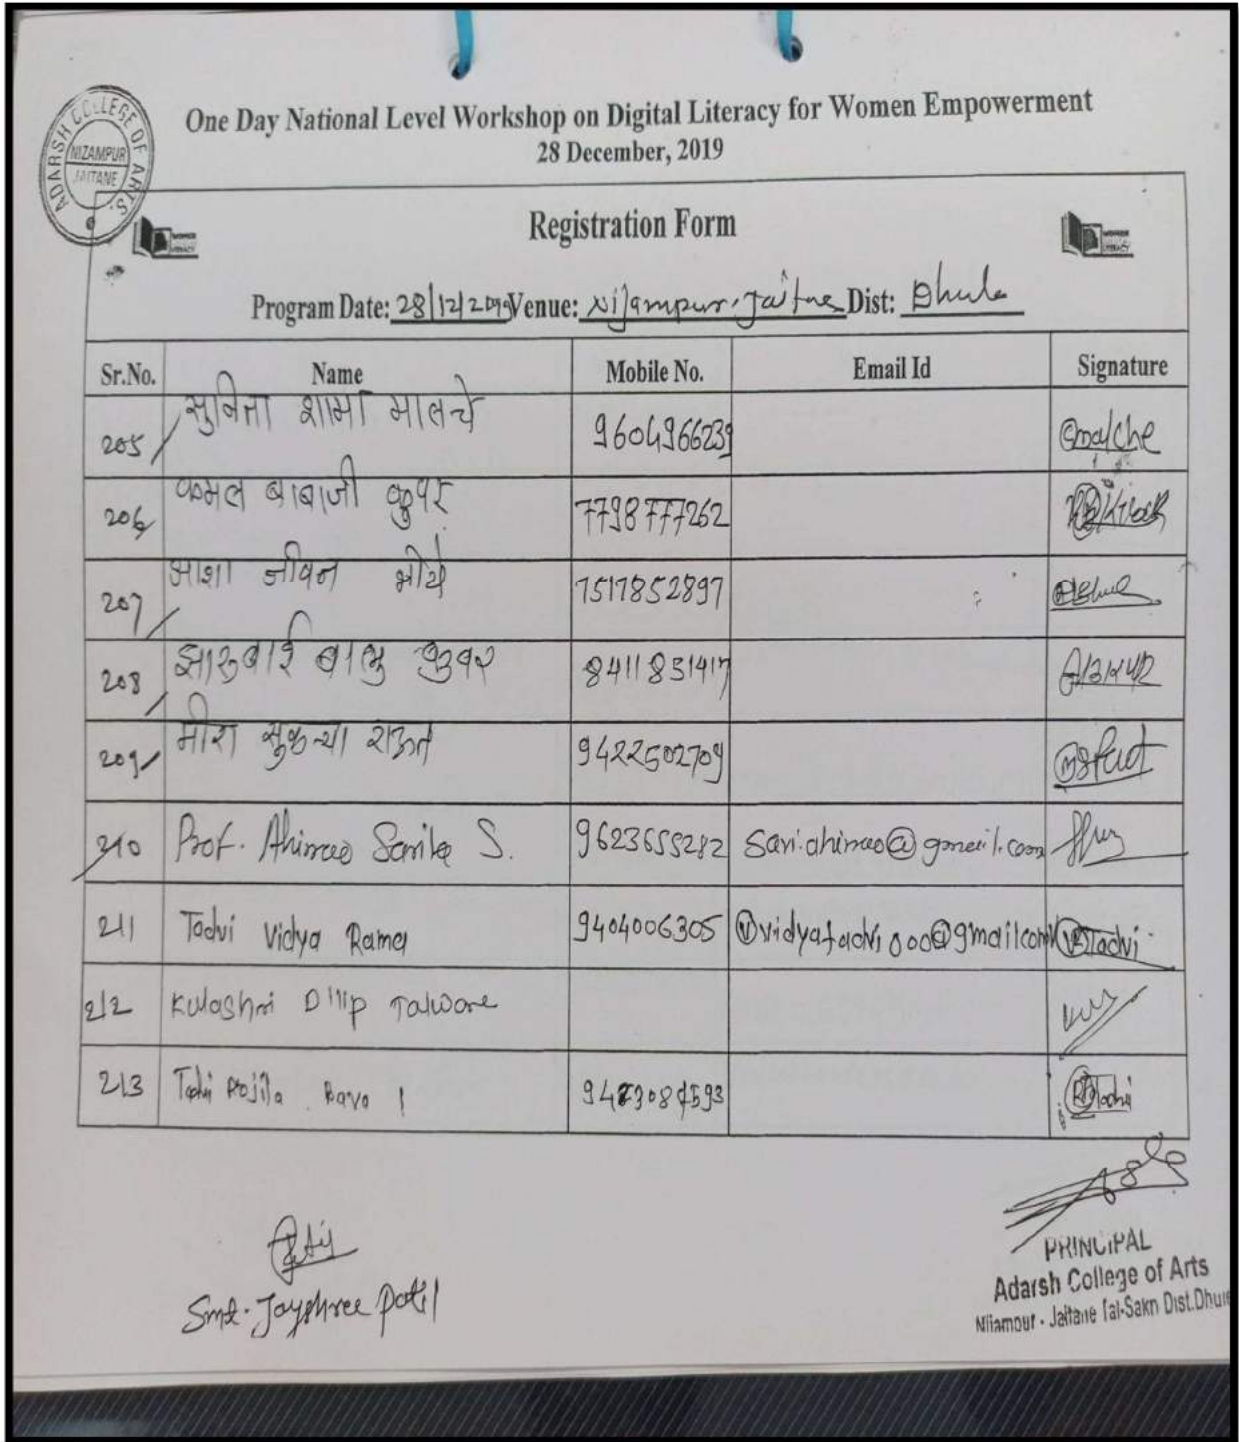 ADARSH COLLEGE OF ARTS.
NIZAMPUR
JAITANE
One Day National Level Workshop on Digital Literacy for Women Empowerment
28 December, 2019
Registration Form
Program Date: 28/12/2019 Venue: Nijampur-Jaitane Dist: Dhule
Sr.No. Name Mobile No. Email Id Signature
205 सुनिता शामा मालचे 9604966239 malche
206 कमल बाबाजी कुवर 7798777262
207 आशा जीवन 7517852897
208 झारुबाई बाळु कुवर 8411831417
209 मीरा सुकन्या राऊत 9422502709
210 Prof. Ahirrao Sarika S. 9623655282 sari.ahirrao@gmail.com
211 Tadvi Vidya Rama 9404006305 vidyatadvi000@gmail.com Tadvi
212 Kulashri Dilip Talware
213 Rajila Bava
Smt. Jayshree Patil
PRINCIPAL
Adarsh College of Arts
Nijampur - Jaitane Tal-Sakri Dist.Dhule